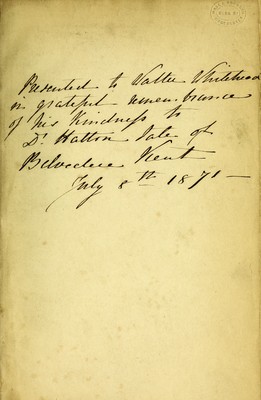 Presented to Walter Whitehead
in grateful remembrance
of his kindness to
Dr Hatton late of
Belvedere Kent
July 8th 1871 —